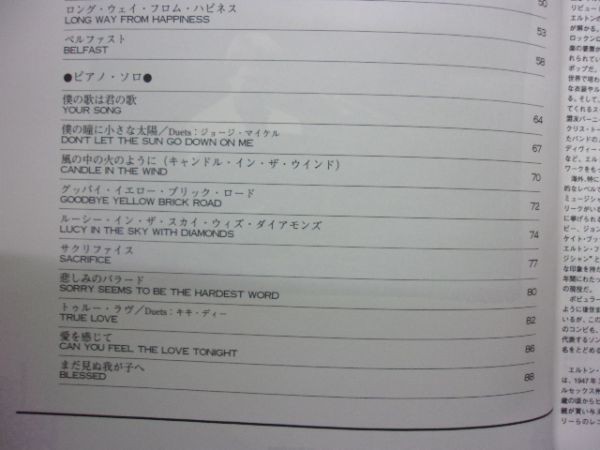 ロング・ウェイ・フロム・ハピネス
LONG WAY FROM HAPPINESS
50
ベルファスト
BELFAST
53
58
●ピアノ・ソロ●
僕の歌は君の歌
YOUR SONG
64
僕の瞳に小さな太陽／Duets：ジョージ・マイケル
DON'T LET THE SUN GO DOWN ON ME
67
風の中の火のように（キャンドル・イン・ザ・ウインド）
CANDLE IN THE WIND
70
グッバイ・イエロー・ブリック・ロード
GOODBYE YELLOW BRICK ROAD
72
ルーシー・イン・ザ・スカイ・ウィズ・ダイアモンズ
LUCY IN THE SKY WITH DIAMONDS
74
サクリファイス
SACRIFICE
77
悲しみのバラード
SORRY SEEMS TO BE THE HARDEST WORD
80
トゥルー・ラヴ／Duets：キキ・ディー
TRUE LOVE
82
愛を感じて
CAN YOU FEEL THE LOVE TONIGHT
86
まだ見ぬ我が子へ
BLESSED
88
リビュー
エルトンの
が解かる。
ロックンに
れられてい
ポップだ。
世界で培わ
な衣装やル
る。そして、
てくれるス
盟友バーニ
クリス・トー
たバンドの
ディヴィー・
など、エル
ワークをもっ
海外、特に
的なレベルで
ミュージシャ
リークがいる
に挙げられる
ビー、ジョン
ケイト・ブッ
エルトン・フ
ジシャン"と
な印象を持た
年間にわたっ
の現役だ。
ポピュラー
ように後世ま
いるが、この
のコンビも、
代表するソン
名をとどめる
エルトン・
は、1947年3
ルセックス州
歳の頃からピ
親が買い与え
リーらのレコ